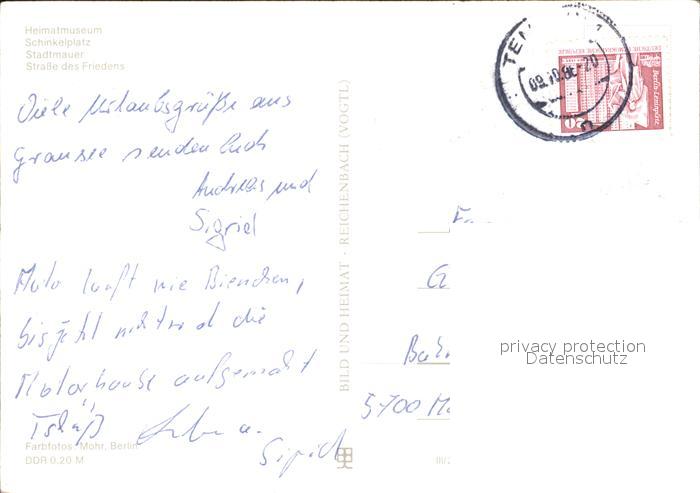 Heimatmuseum
Schinkelplatz
Stadtmauer
Straße des Friedens
Viele Urlaubsgrüße aus
Gransee senden Euch
Andreas und
Sigrid
Moto läuft wie Bienchen,
bis jetzt nicht die
Motorhaube aufgemacht
Tshüß
Sigrid
Farbfotos: Mohr, Berlin
DDR 0.20 M
BILD UND HEIMAT · REICHENBACH (VOGTL)
III/
TEN
09.10.86-20
DEUTSCHE DEMOKRATISCHE REPUBLIK
Berlin-Leninplatz
20
F
G
Bah
5700 M
privacy protection
Datenschutz